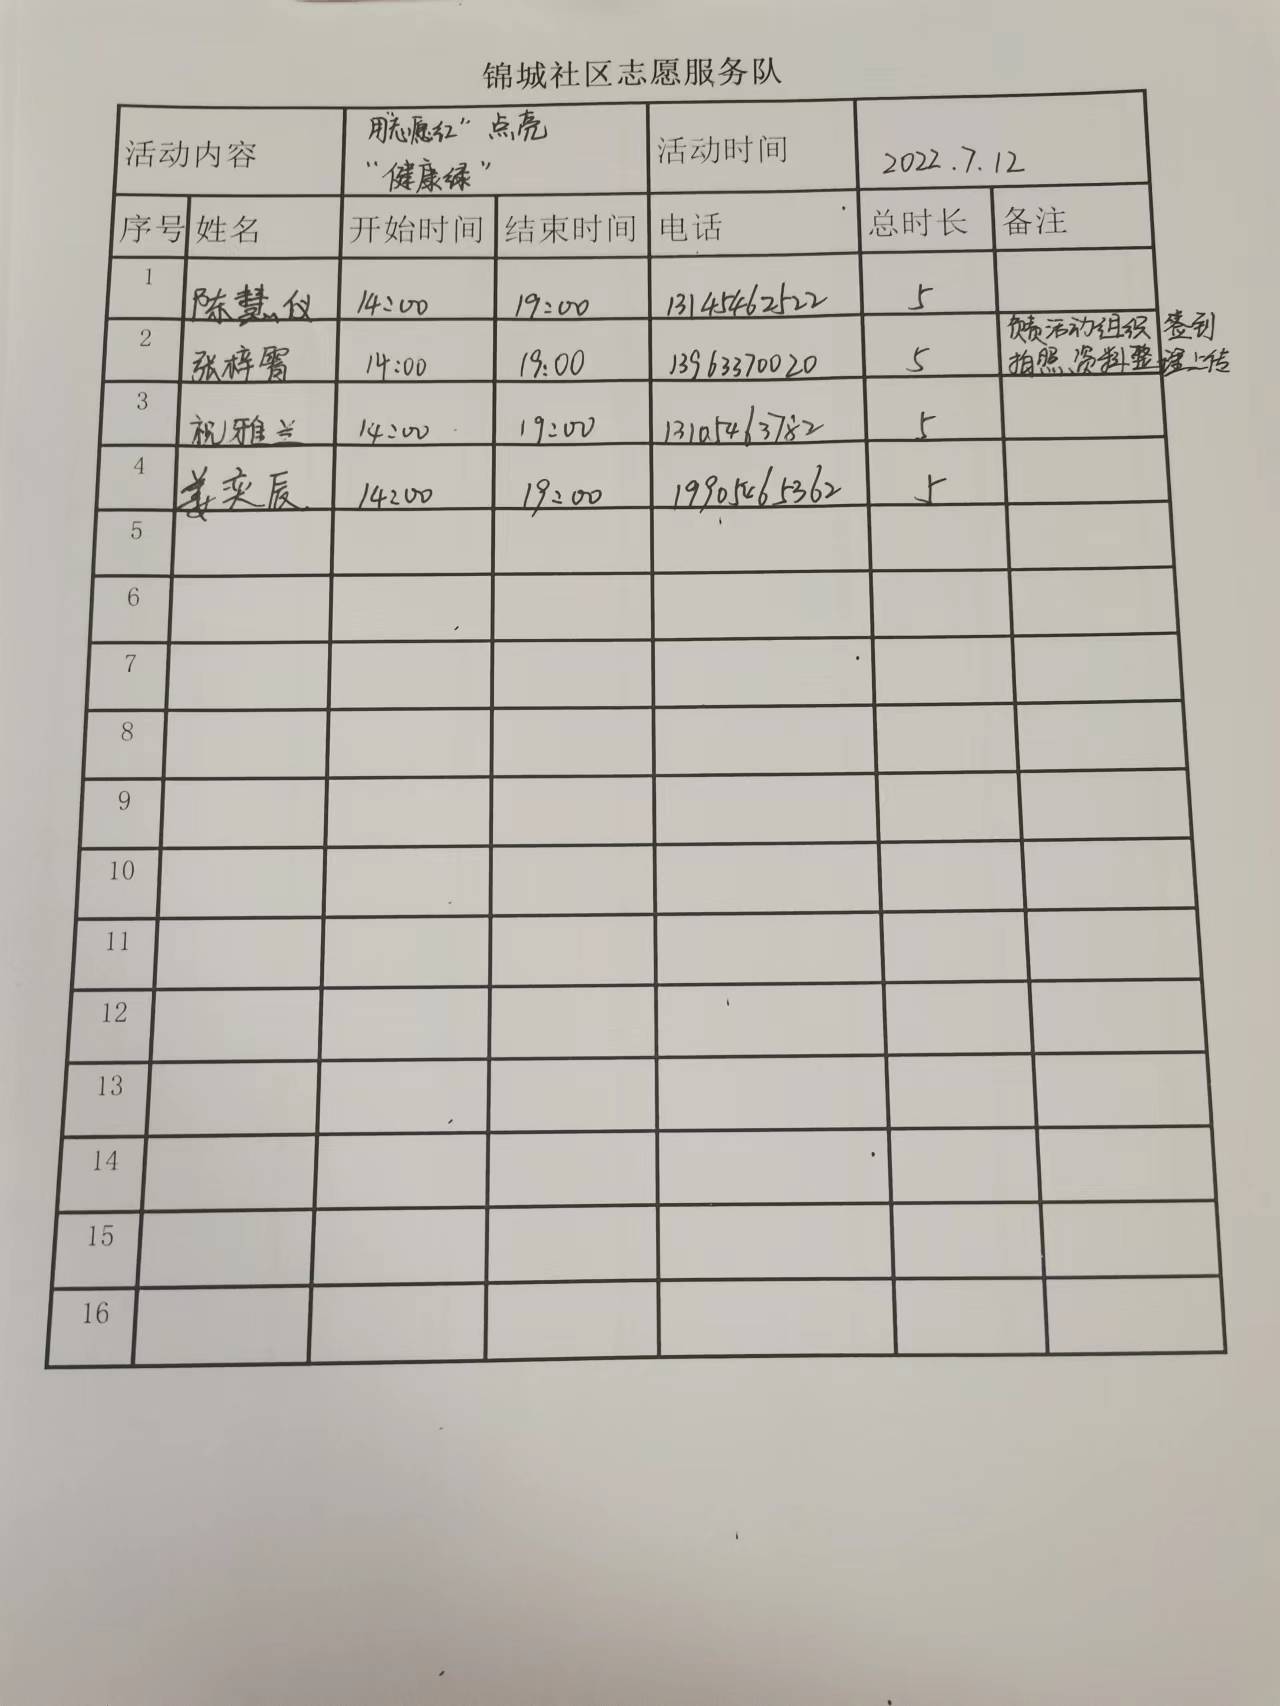 锦城社区志愿服务队
活动内容 用"志愿红"点亮 活动时间 2022.7.12
"健康绿"
序号 姓名 开始时间 结束时间 电话 总时长 备注
1 陈慧仪 14:00 19:00 13145462522 5
2 张梓霄 14:00 19:00 13963370020 5 负责活动组织 签到
拍照、资料整理上传
3 祝雅兰 14:00 19:00 13105463782 5
4 姜奕辰 14:00 19:00 19905465362 5
5
6
7
8
9
10
11
12
13
14
15
16